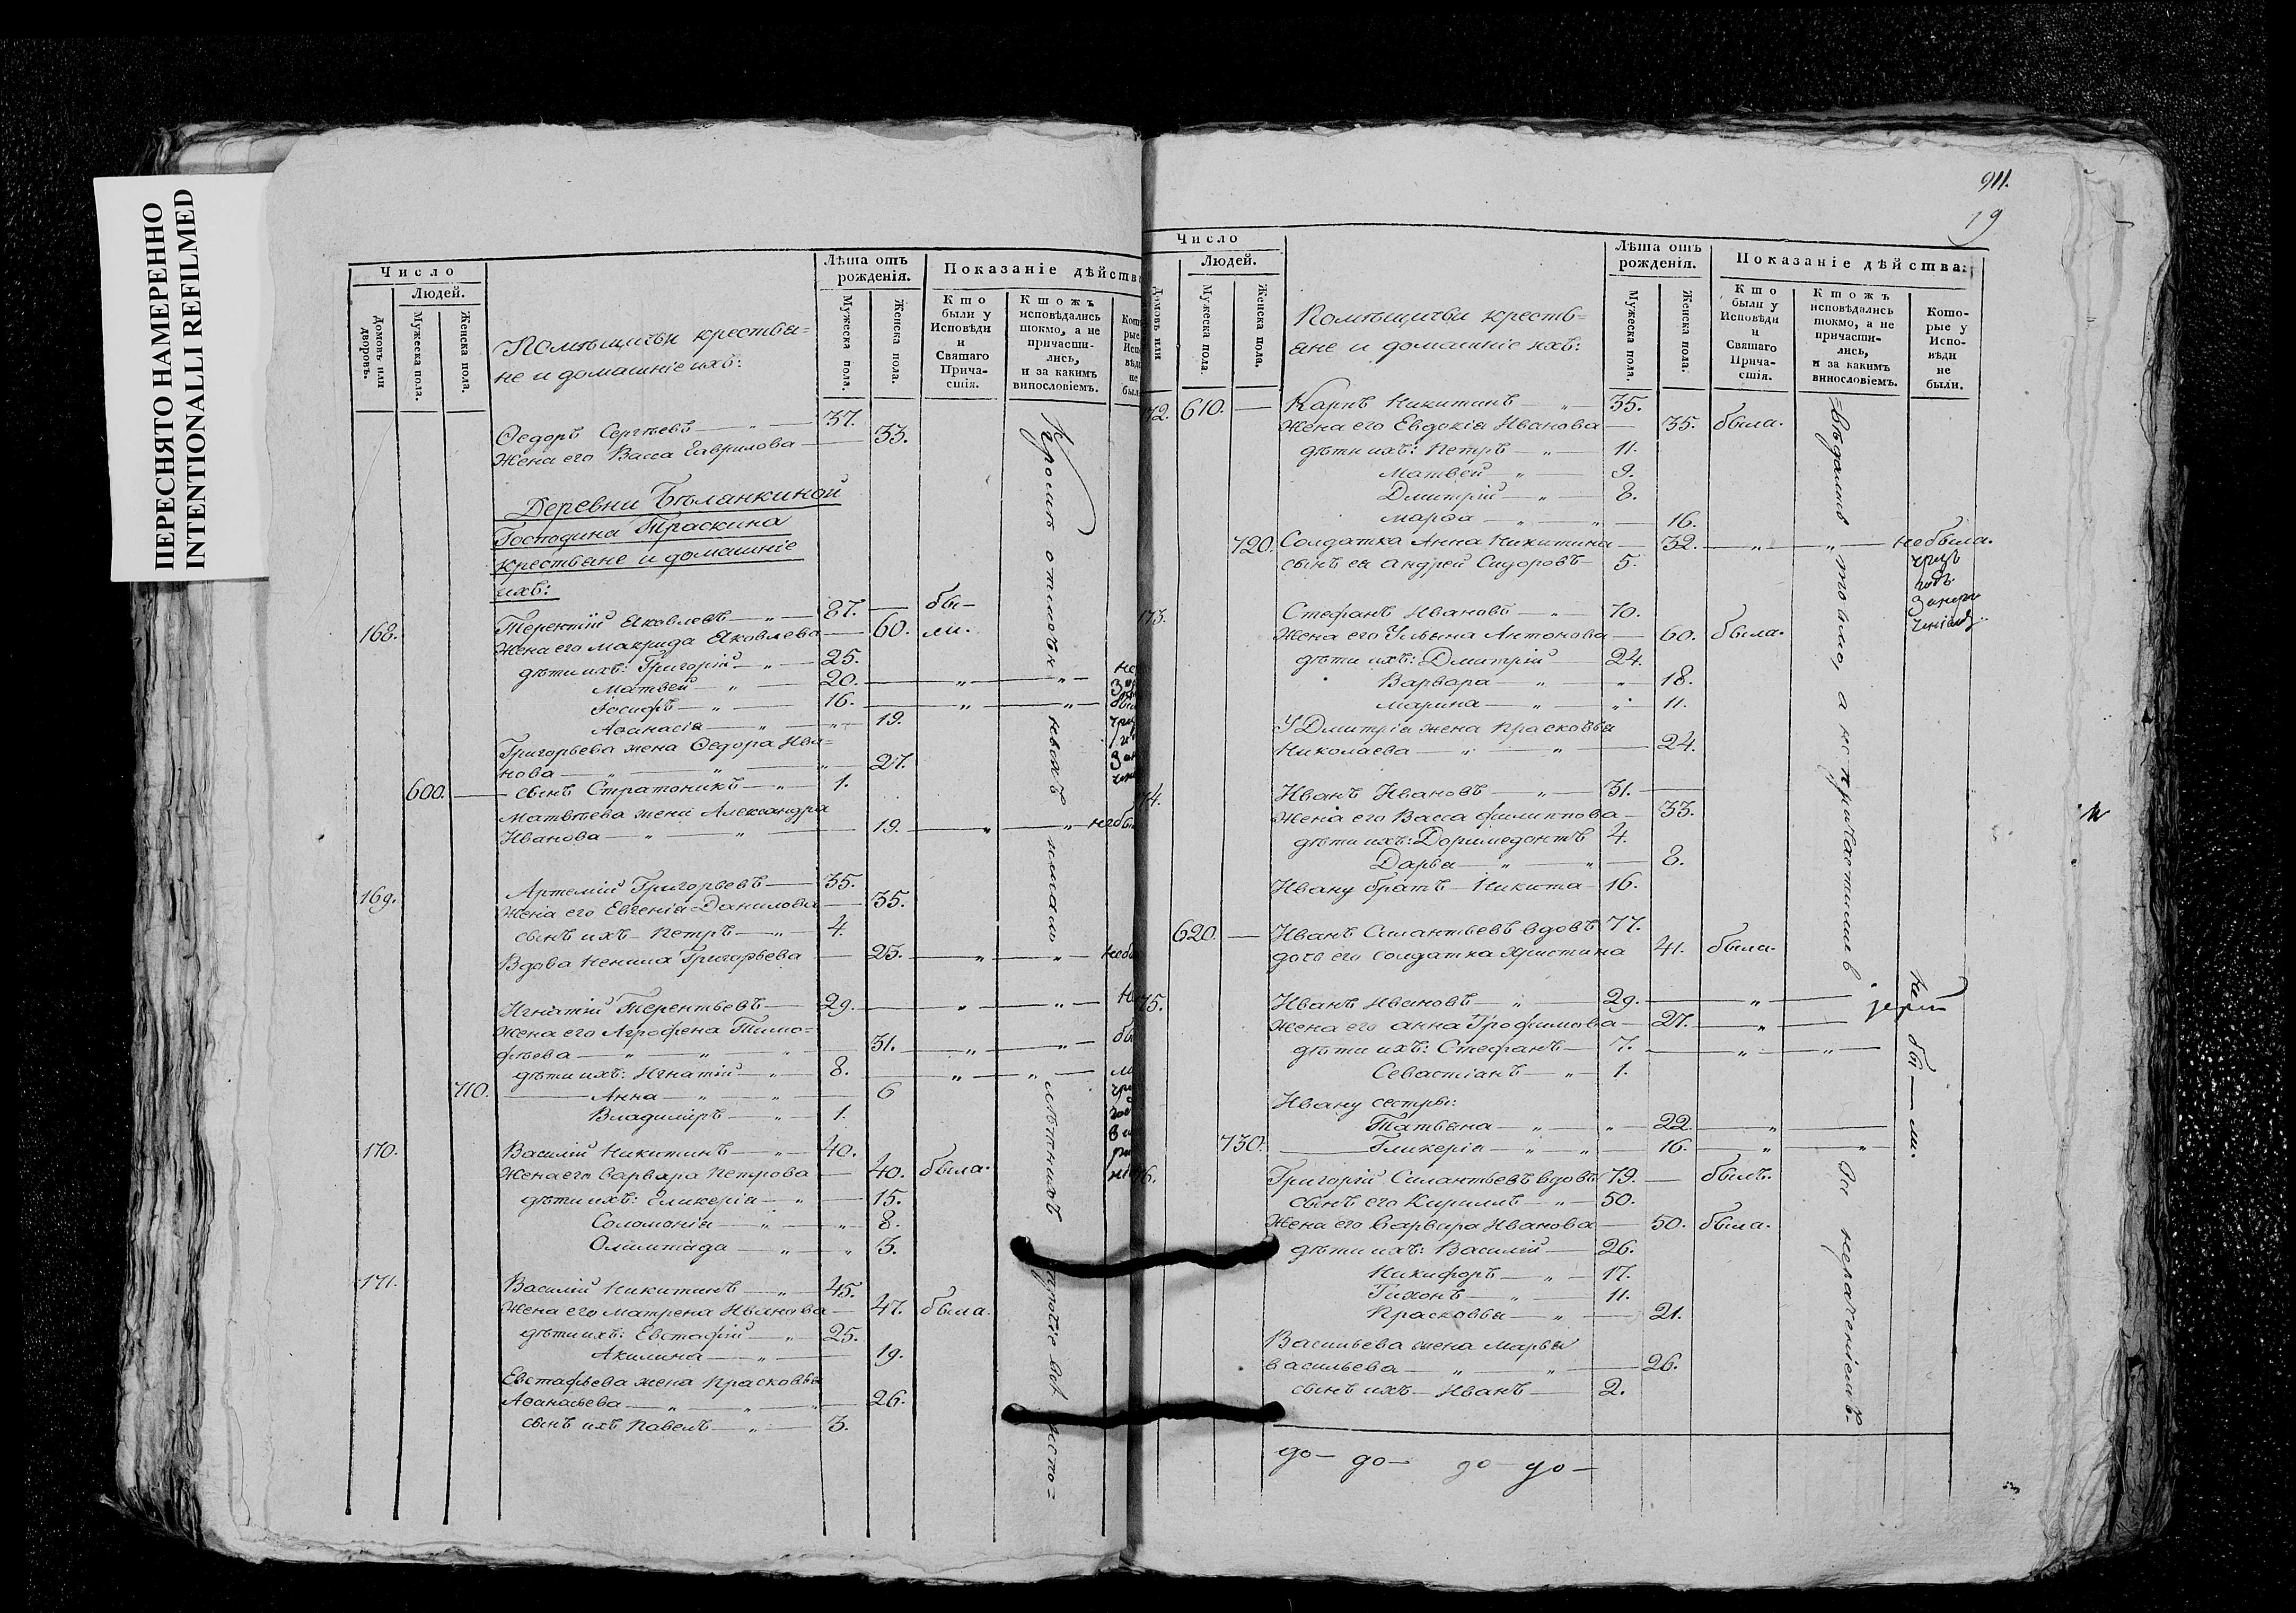 ПЕРЕСНЯТО НАМЕРЕННО
INTENTIONALLI REFILMED
Число
Людей.
Домовъ или дворовъ.
Мужеска пола.
Женска пола.
Помѣщичьи крестья=
не и домашніе ихъ:
Лѣта отъ рожденія.
Мужеска пола.
Женска пола.
Показаніе дѣйств
Кто были у Исповѣди и Святаго Прича-стія.
Ктожъ исповѣдались токмо, а не причасти-лись, и за какимъ винословіемъ.
Ѳедоръ Сергѣевъ — „ — 37.
Жена его Васса Гаврилова — 33.
Деревни Бѣланкиной
Господина Траскина
крестьяне и домашніе
ихъ:
168. Терентій Яковлевъ — „ — 87. — бы-
Жена его Макрида Яковлева — 60. ли.
дѣти ихъ: Григорій — „ — 25.
Матвей — „ — 20. — „ — „ —
Іосифъ — „ — 16. — „ — „ —
Аѳанасія — „ — „ — 19.
Григорьева жена Ѳедора Ива=
нова — „ — „ — „ — 27.
600. — сынъ Стратоникъ — „ — 1.
Матвѣева жена Александра
Иванова — „ — „ — 19. — „ — „ — небы
169. Артемій Григорьевъ — 35.
Жена его Евгенія Данилова — 35.
сынъ ихъ — Петръ — „ — 4.
Вдова Ненила Григорьева — 23. — „ — „ — небы
Игнатій Терентьевъ — 29. — „ — „ — н
Жена его Агрофена Тимо=
фѣева — „ — „ — „ — 31. — „ — „ — бы
дѣти ихъ: Игнатій — „ — 8. — „ — „ —
710. — Анна — „ — „ — 6
Владиміръ — „ — 1.
170. Василій Никитинъ — „ — 40.
Жена его Варвара Петрова — 40. была.
дѣти ихъ: Гликерія — „ — 15.
Соломонія — „ — „ — 8.
Олимпіада — „ — „ — 3.
171. Василій Никитинъ — „ — 45.
Жена его Матрена Иванова — 47. была.
дѣти ихъ: Евстафій — „ — 25.
Акилина — „ — 19.
Евстафьева жена Прасковья
Аѳанасьева — „ — „ — „ — 26.
сынъ ихъ Павелъ — „ — 3.
Кромѣ отмѣтки
911.
19
Число
Людей.
Домовъ или
Мужеска пола.
Женска пола.
Помѣщичьи кресть=
яне и домашніе ихъ:
Лѣта отъ рожденія.
Мужеска пола.
Женска пола.
Показаніе дѣйства:
Кто были у Исповѣди и Святаго Прича-стія.
Ктожъ исповѣдались токмо, а не причасти-лись, и за какимъ винословіемъ.
Кото-рые у Испо-вѣди не были.
72. 610. — Карпъ Никитинъ — „ — 35.
Жена его Евдокія Иванова — 35. была.
дѣти ихъ: Петръ — „ — 11.
Матвей — „ — 9.
Дмитрій — „ — 8.
Марѳа — „ — „ — 16.
720. Солдатка Анна Никитина — 32. — „ — „ — небыла.
сынъ ея Андрей Сидоровъ — 5.
73. Стефанъ Ивановъ — „ — 70.
Жена его Ульяна Антонова — 60. была.
дѣти ихъ: Дмитрій — 24.
Варвара — „ — „ — 18.
Марина — „ — „ — 11.
У Дмитрія жена Прасковья
Николаева — „ — „ — 24.
74. Иванъ Ивановъ — „ — 31. —
Жена его Васса Филиппова — 33.
дѣти ихъ: Доримедонтъ 4.
Дарья — „ — „ — 8.
Ивану братъ — Никита — 16.
620. — Иванъ Силантьевъ вдовъ 77.
дочь его солдатка Христина 41. была.
75. Иванъ Ивановъ — „ 29. — „ —
Жена его Анна Трофимова — 27. — „ —
дѣти ихъ: Стефанъ — 7. — „ — „ —
Севастіанъ — „ — 1.
Ивану сестры:
Татьяна — „ — „ — 22. — „ —
730. — Гликерія — „ — „ — 16. — „ — „
76. Григорій Силантьевъ вдовъ 79. — былъ.
сынъ его Кириллъ — „ — 50.
Жена его Варвара Иванова — 50. была.
дѣти ихъ: Василій — 26.
Никифоръ — „ — 17.
Тихонъ — „ — 11.
Прасковья — „ — 21.
Васильева жена Марья
Васильева — „ — „ — 26.
сынъ ихъ — Иванъ — 2.
=вѣдались токмо, а не причастились
за нераченіемъ.
не бы — ли.
іерей
до — до — до — до —